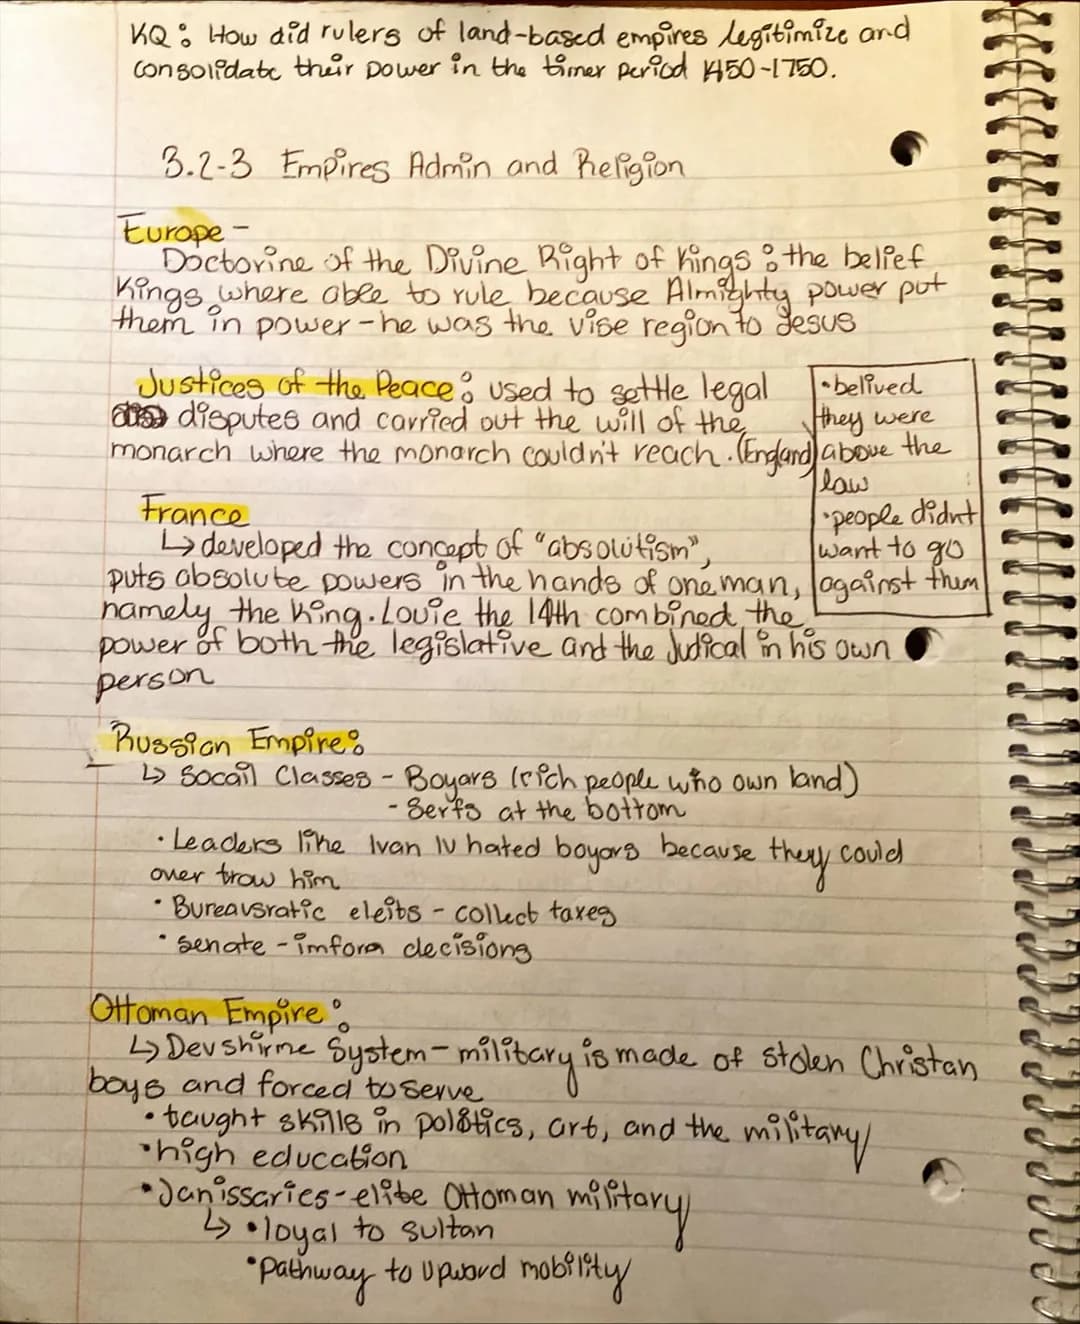 KQ: How did rulers of land-based empires legitimize and
consolidate their power in the timer period 1450-1750.
3.2-3 Empires Admin and Religion
Europe -
Doctorine of the Divine Right of Kings: the belief
Kings where able to rule because Almighty power put
them in power - he was the vise region to Jesus
Justices of the Peace: used to settle legal
disputes and carried out the will of the
monarch where the monarch couldn't reach. (England)
•belived
they were
above the
law
•people didnt
want to go
against them
France
↳ developed the concept of "absolutism",
puts absolute powers in the hands of one man,
namely the king. Louie the 14th combined the
power of both the legislative and the Judical in his own
person
Russian Empire:
↳ Socail Classes - Boyars (rich people who own land)
- Serfs at the bottom
• Leaders like Ivan IV hated boyars because they could
over trow him
• Bureausratic eleits - collect taxes
• Senate - imform decisions
Ottoman Empire:
↳ Devshirme System - military is made of stolen Christan
boys and forced to serve
• taught skills in politics, art, and the military
• high education
• Janissaries - elite Ottoman military
↳ • loyal to sultan
• Pathway to upward mobility